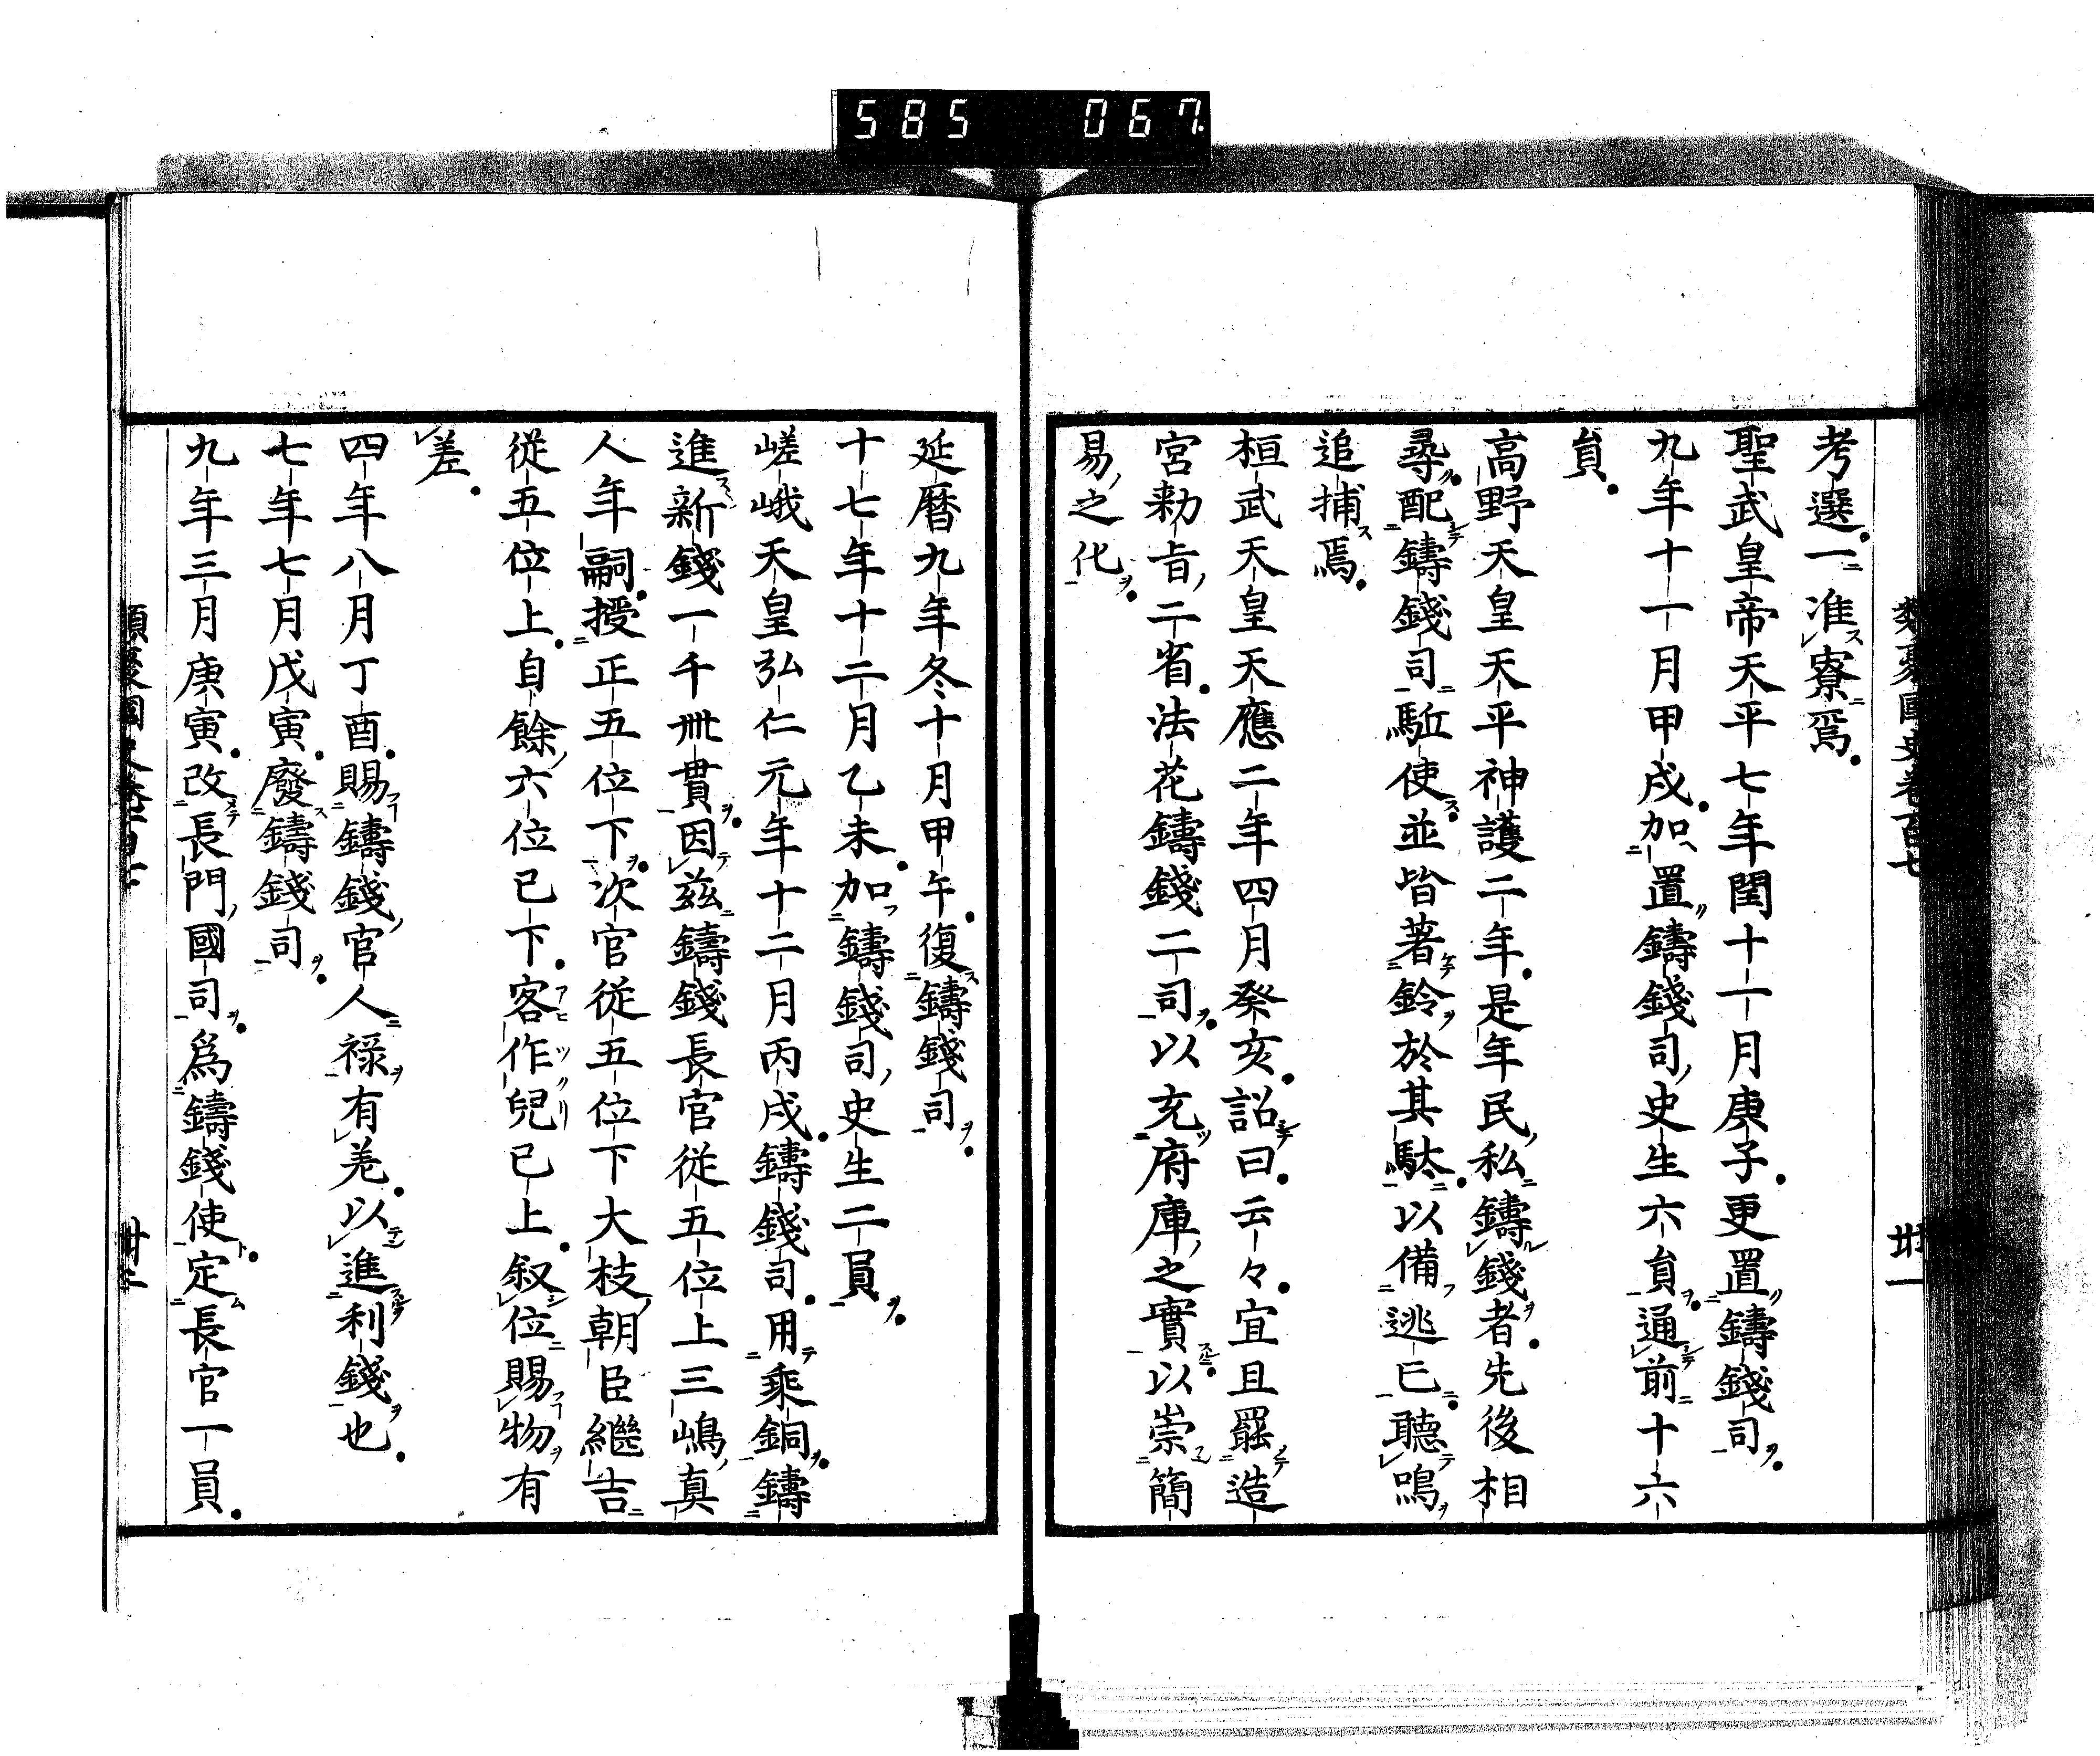 585 067
類聚國史卷百七 廿一
考選一准寮焉
聖武皇帝天平七年閏十一月庚子更置鑄錢司
九年十一月甲戌加置鑄錢司史生六貟通前十六
貟
高野天皇天平神護二年是年民私鑄錢者先後相
尋配鑄錢司駈使並皆著鈴於其駄以備逃亡聽鳴
追捕焉
桓武天皇天應二年四月癸亥詔曰云々宜且罷造
宮勅旨二省法花鑄錢二司以充府庫之實以崇簡
易之化
延曆九年冬十月甲午復鑄錢司
十七年十二月乙未加鑄錢司史生二員
嵯峨天皇弘仁元年十二月丙戌鑄錢司用乘銅鑄
進新錢一千卌貫因茲鑄錢長官從五位上三嶋真
人年嗣授正五位下次官從五位下大枝朝臣繼吉
從五位上自餘六位已下客作兒已上叙位賜物有
差
四年八月丁酉賜鑄錢官人祿有差以進利錢也
七年七月戊寅廢鑄錢司
九年三月庚寅改長門國司爲鑄錢使定長官一員
類聚國史卷百七 廿二